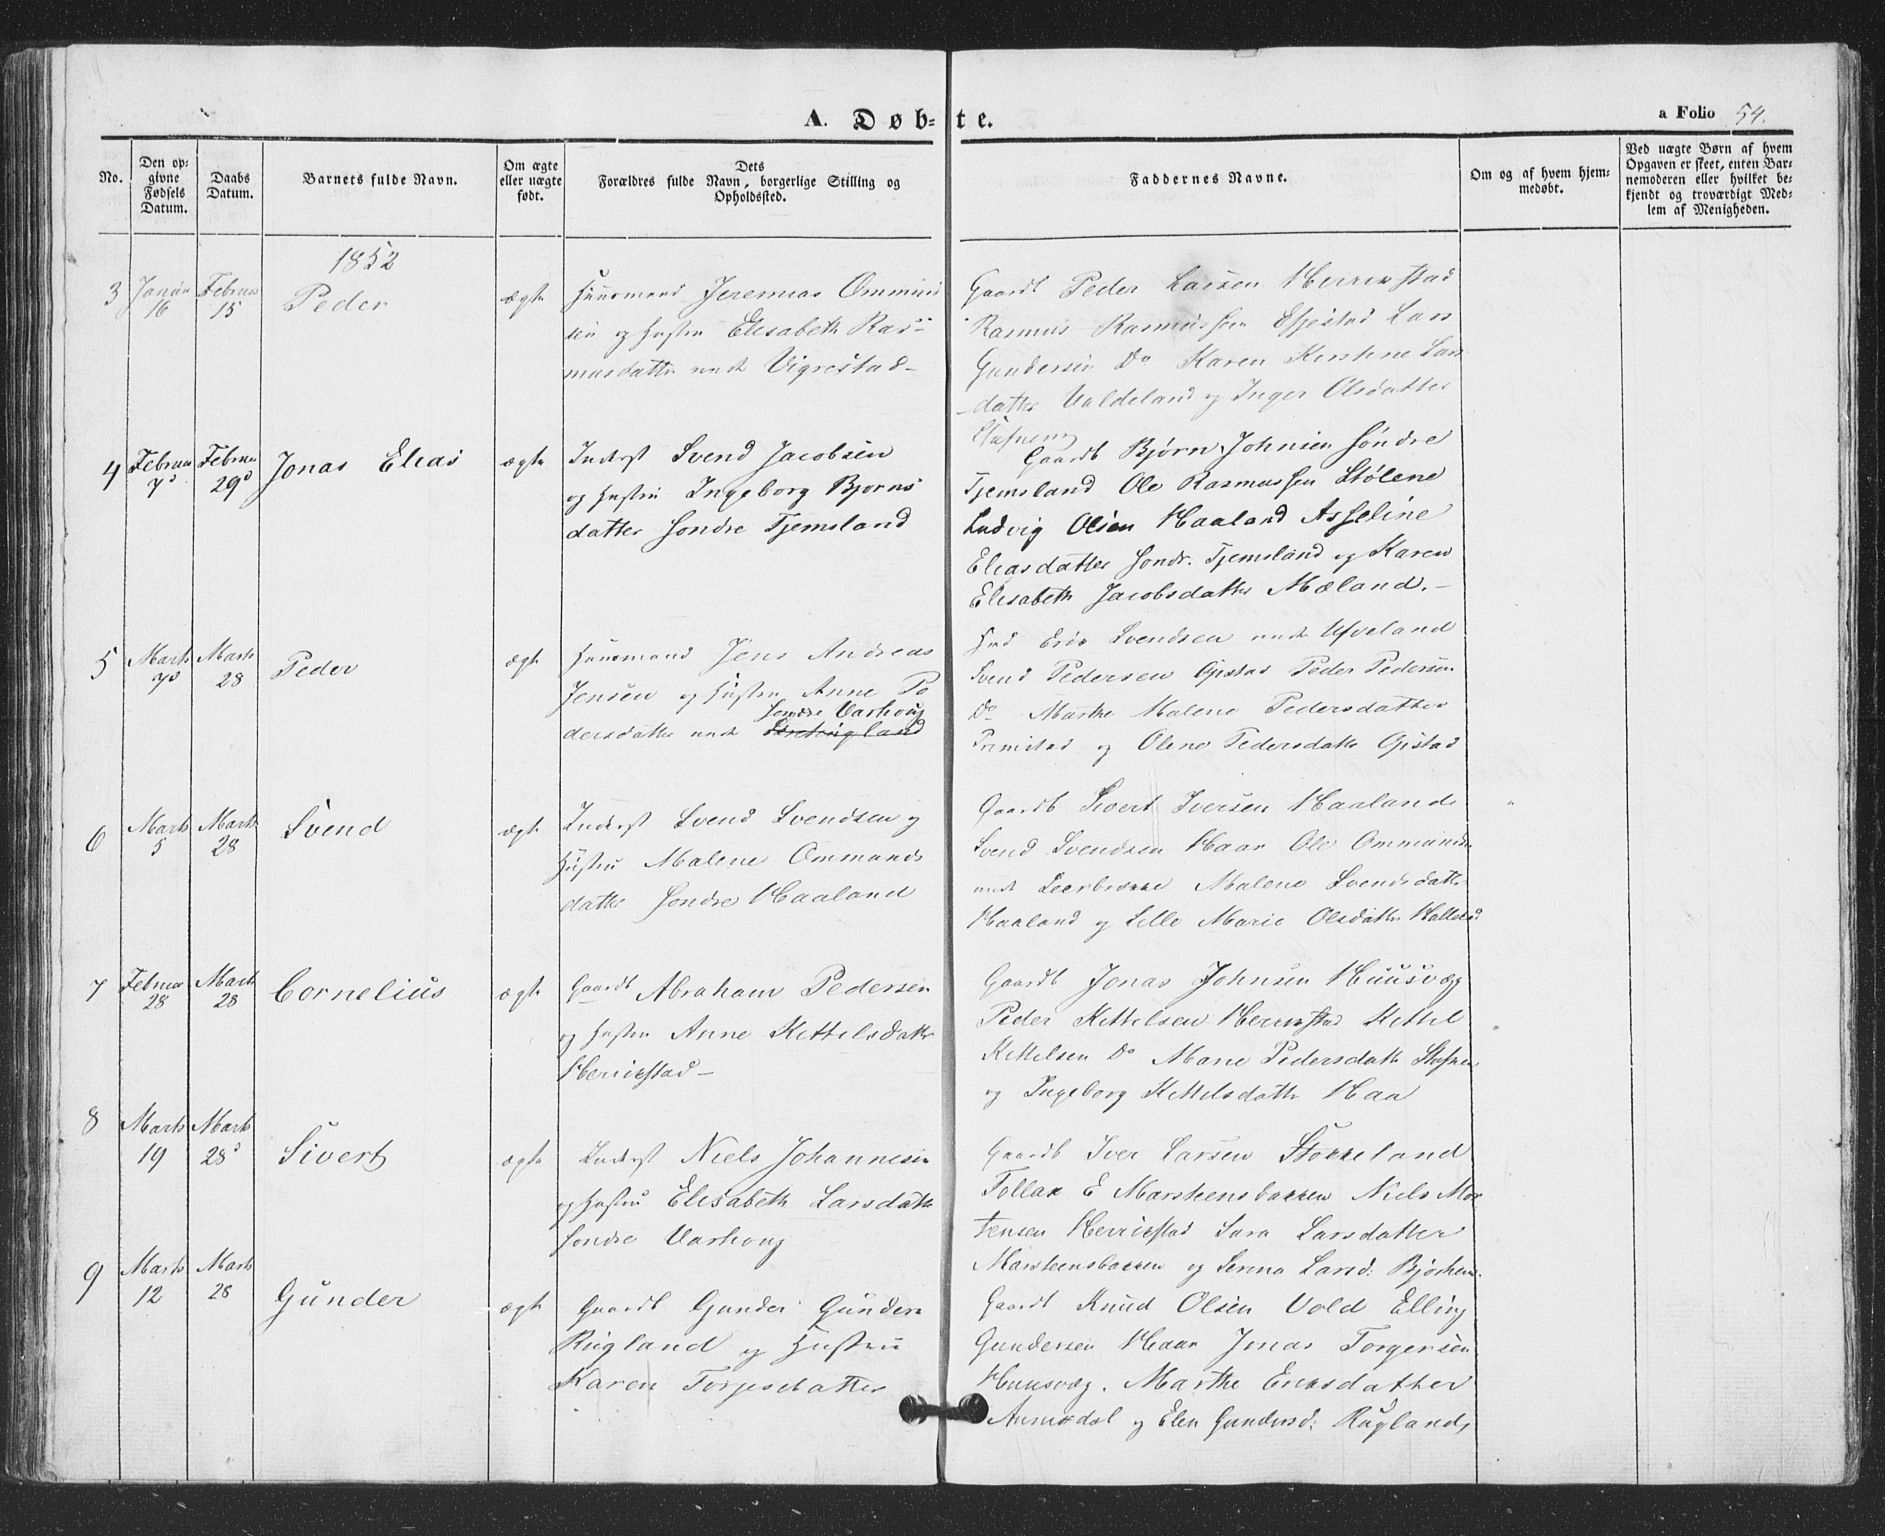 A. Døb=te.
a Folio 54.
No.
Den op=
givne
Fødsels
Datum.
Daabs
Datum.
Barnets fulde Navn.
Om ægte
eller uægte
født.
Dets
Forældres fulde Navn, borgerlige Stilling og
Opholdssted.
Faddernes Navne.
Om og af hvem hjem=
medøbt.
Ved uægte Børn af hvem
Opgaven er skeet, enten Bar=
nemoderen eller hvilket be=
kjendt og troværdigt Med=
lem af Menigheden.
1852
3 Januar 16 Februar 15 Peder ægte
Huusmand Jeremias Ommun
sen og Hustru Elisabeth Ras=
musdatter Vigrestad
Gaardb Peder Larsen Herrikstad
Rasmus Rasmussen Efjestad Lars
Gundersen Do Karen Kirstine Lars
datter Valdeland og Inger Olsdatter
4 Februar 7d Februar 29d Jonas Elias ægte
Inderst Svend Jacobsen
og Hustru Ingeborg Bjorns
datter Søndre Tjemsland
Gaardb Bjørn Johnsen Søndre
Tjemsland Ole Rasmussen Stølene
Ludvig Olsen Haaland Asseline
Eliasdatter Søndr. Tjemsland og Karen
Elisabeth Jacobsdatter Mæland.
5 Marts 7d Marts 28 Peder ægte
Huusmand Jens Andreas
Jensen og Hustru Anne Pe
Søndre Varhoug
dersdatter
Eric Svendsen Ufveland
Svend Pedersen Opstad Peder Pedersen
Do Marthe Malene Pedersdatter
og Olene Pedersdatter Opstad
6 Marts 5 Marts 28 Svend ægte
Inderst Svend Svendsen og
Hustru Malene Ommunds
datter Søndre Haaland
Gaardb Sivert Iversen Haaland
Svend Svendsen Haar Ole Ommunds
Malene Svendsdatter
Haaland og Lille Marie Olsdatter
7 Februar 28 Marts 28 Cornelius ægte
Gaardb Abraham Pedersen
og Hustru Anne Kettelsdatter
Herrikstad
Gaardb Jonas Johnsen Huusvæg
Peder Kettelsen Herrikstad Kettel
Kettelsen Do Marie Pedersdatter
og Ingeborg Kettelsdatter Haa
8 Marts 19 Marts 28d Sivert ægte
Inderst Niels Johannesen
og Hustru Elisabeth Larsdatter
Søndre Varhoug
Gaardb Iver Larsen Stokkeland
Tollak E Marsteensbakken Niels Mor
tensen Herrikstad Sara Larsdatter
Marsteensbakken og Serena Larsd:
9 Marts 12 Marts 28 Gunder ægte
Gaardb Gunder Gunders
Rugland og Hustru
Karen Torjesdatter
Gaardb Knud Olsen Vold Elling
Gundersen Haar Jonas Torgersen
Huusvæg. Marthe Ericksdatter
og Elen Gundersd: Rugland,